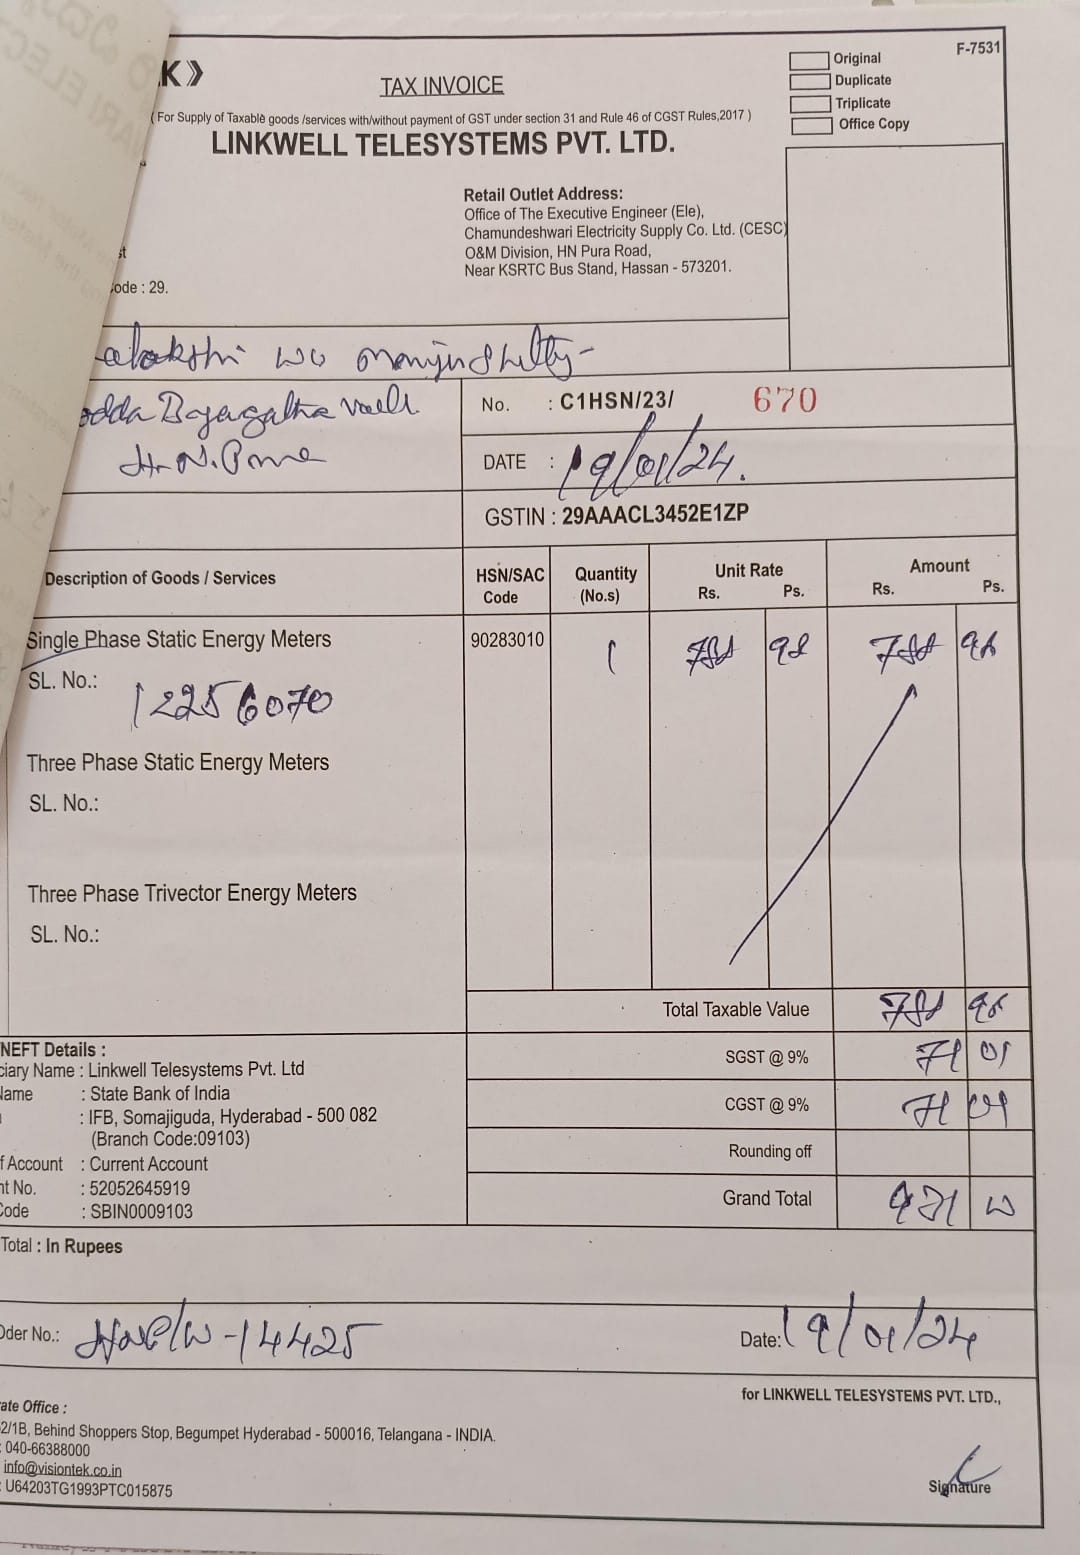 K》
TAX INVOICE
Original
Duplicate
Triplicate
Office Copy
F-7531
( For Supply of Taxable goods /services with/without payment of GST under section 31 and Rule 46 of CGST Rules,2017 )
LINKWELL TELESYSTEMS PVT. LTD.
Retail Outlet Address:
Office of The Executive Engineer (Ele),
Chamundeshwari Electricity Supply Co. Ltd. (CESC)
O&M Division, HN Pura Road,
Near KSRTC Bus Stand, Hassan - 573201.
ode : 29.
No. : C1HSN/23/ 670
DATE : 19/01/24.
GSTIN : 29AAACL3452E1ZP
Description of Goods / Services HSN/SAC Code Quantity (No.s) Unit Rate Rs. Ps. Amount Rs. Ps.
Single Phase Static Energy Meters 90283010 1 788 98 788 98
SL. No.: 12256070
Three Phase Static Energy Meters
SL. No.:
Three Phase Trivector Energy Meters
SL. No.:
Total Taxable Value 788 98
SGST @ 9% 71 01
CGST @ 9% 71 01
Rounding off
Grand Total 931
NEFT Details :
ciary Name : Linkwell Telesystems Pvt. Ltd
Name : State Bank of India
: IFB, Somajiguda, Hyderabad - 500 082
(Branch Code:09103)
f Account : Current Account
nt No. : 52052645919
Code : SBIN0009103
Total : In Rupees
Oder No.: -14425
Date: 19/01/24
for LINKWELL TELESYSTEMS PVT. LTD.,
ate Office :
2/1B, Behind Shoppers Stop, Begumpet Hyderabad - 500016, Telangana - INDIA.
: 040-66388000
info@visiontek.co.in
: U64203TG1993PTC015875
Signature